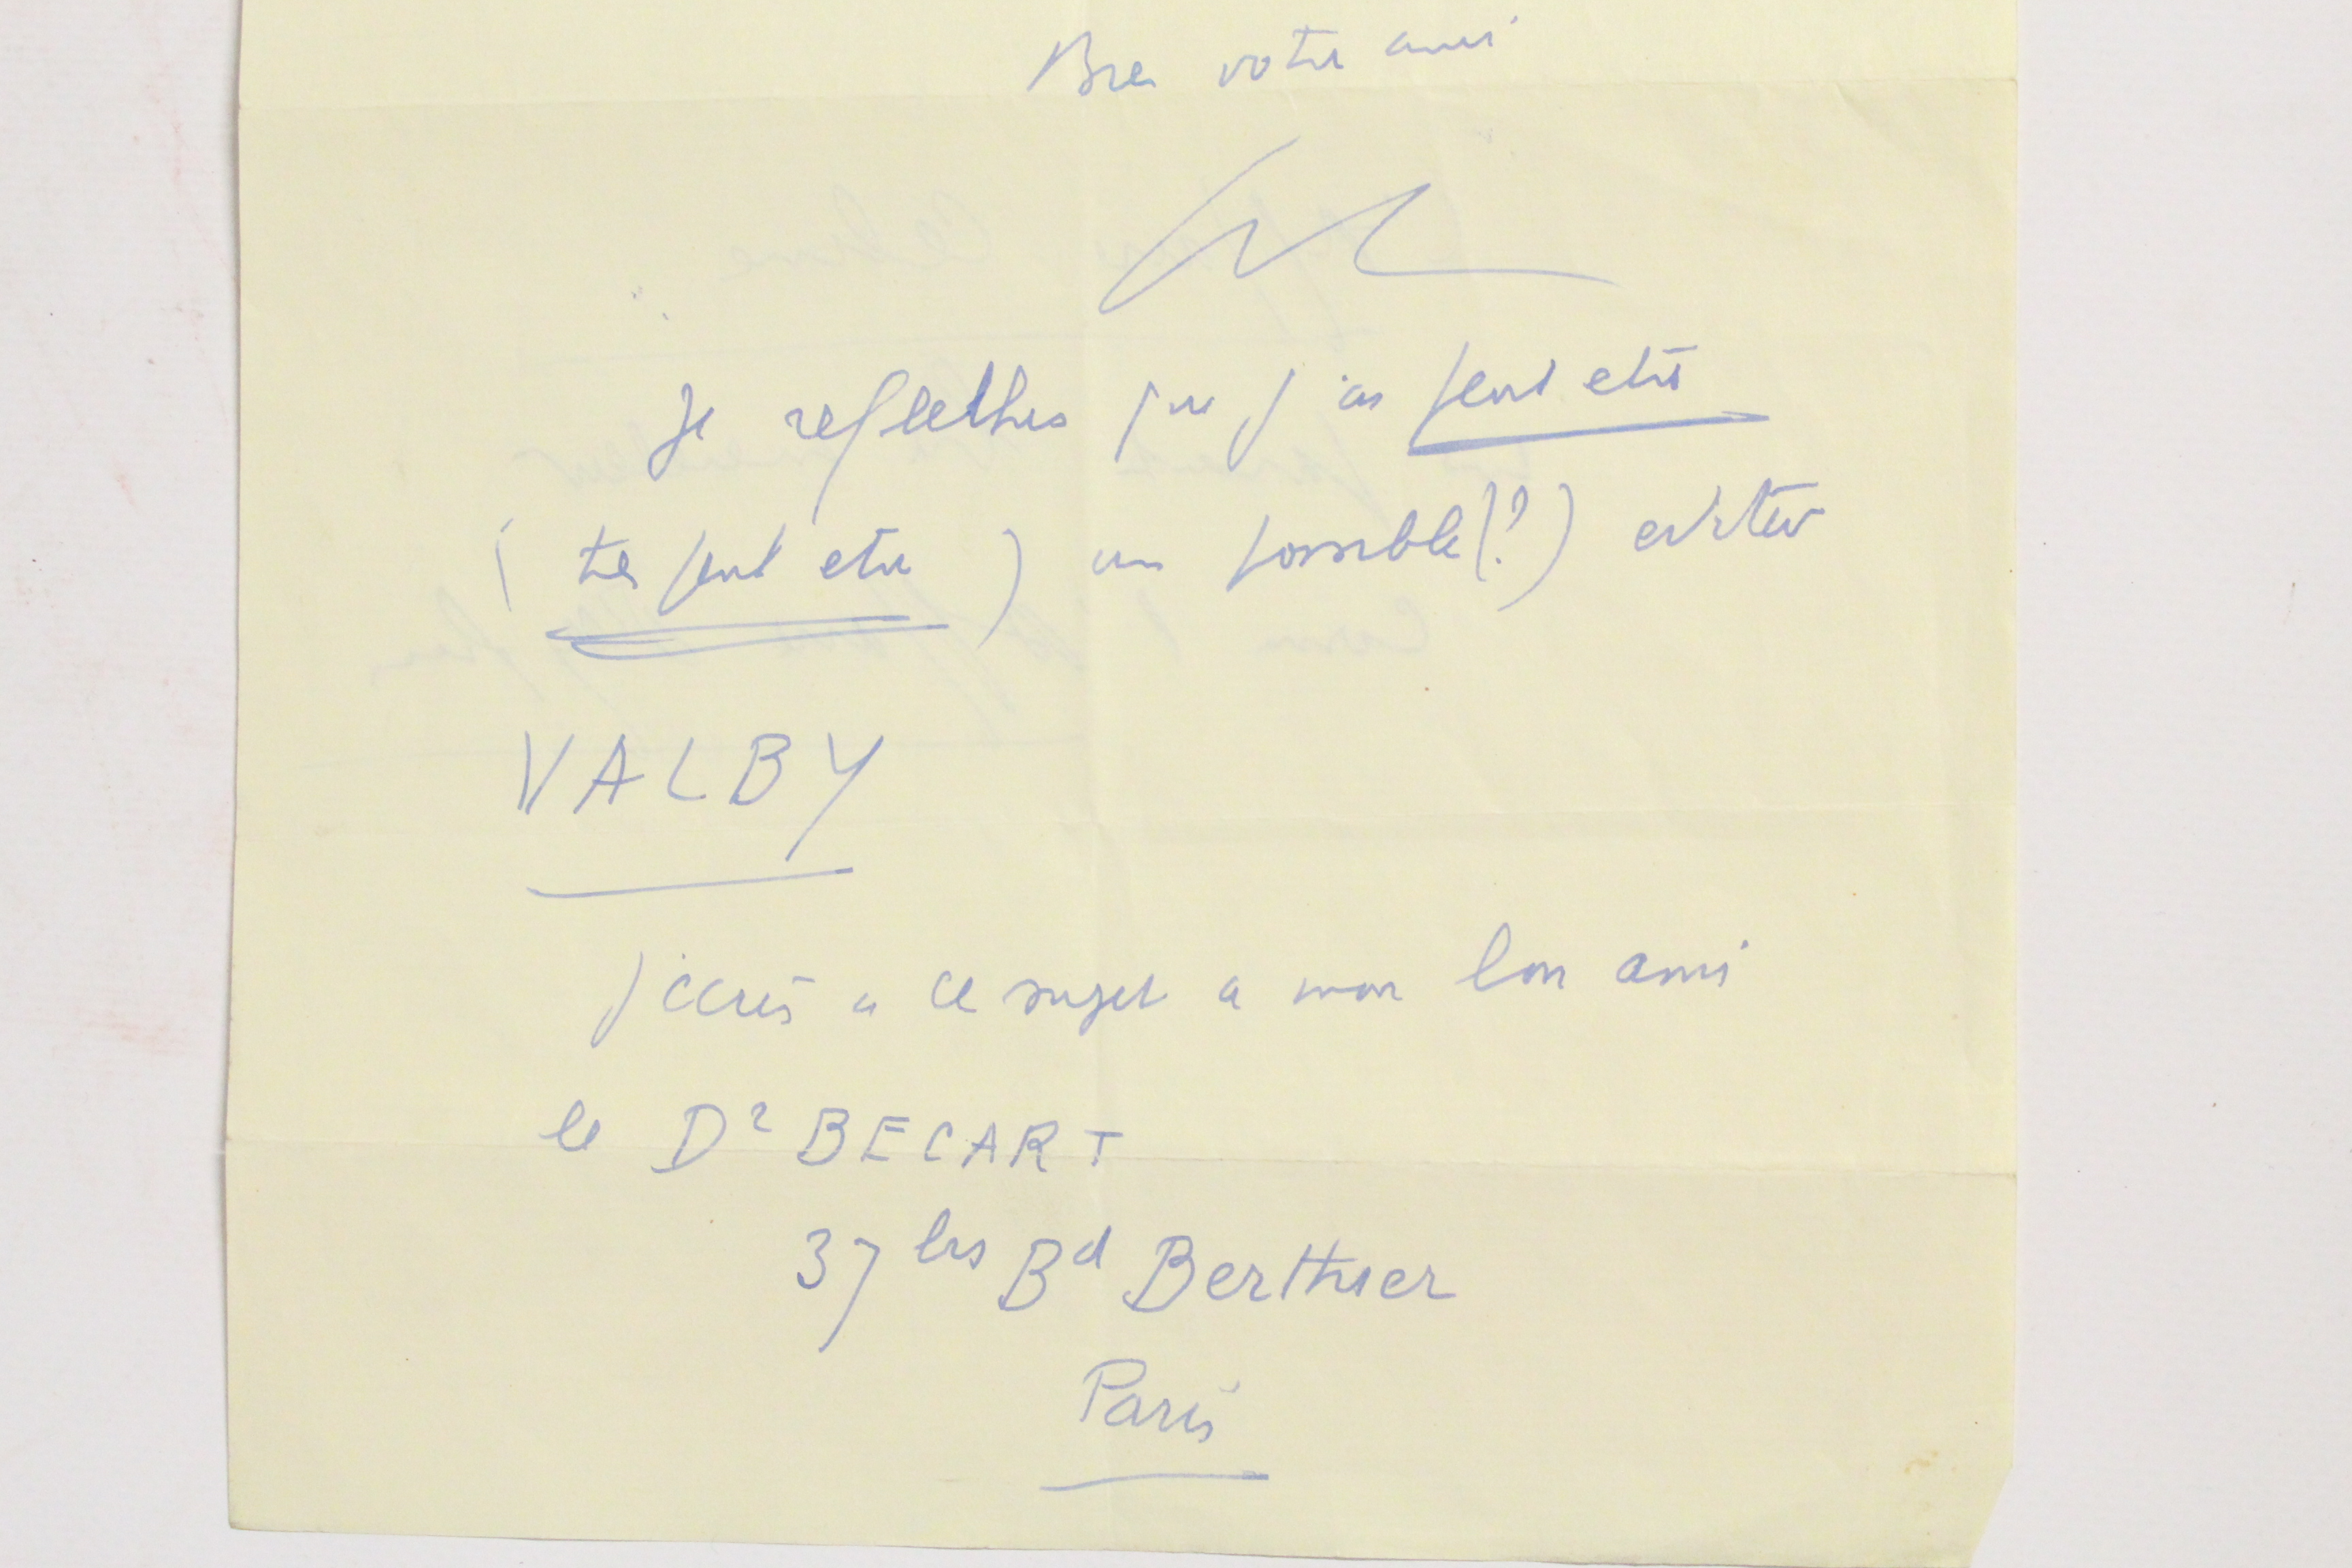 Bien votre ami
Je reflechis que j'ai peut etre
(tres peut etre) un possible (?) editeur
VALBY
J'ecris a ce sujet a mon bon ami
le Dr BECART
37 bis Bd Berthier
Paris